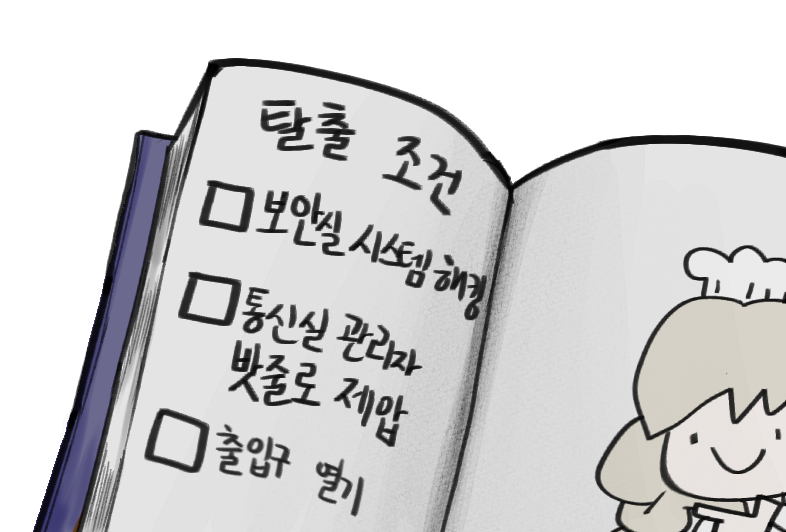 탈출 조건
보안실 시스템 해킹
통신실 관리자
밧줄로 제압
출입구 열기